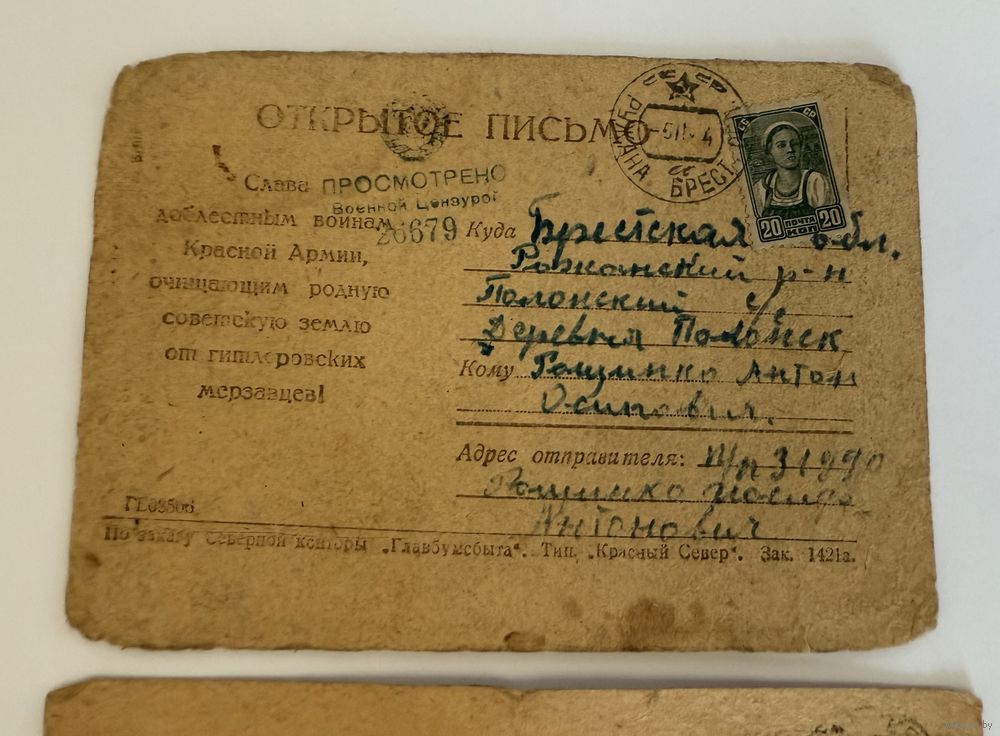 ОТКРЫТОЕ ПИСЬМО
СССР
РУЖАНА БРЕСТ
ПОЧТА
20 КОП 20
ПРОСМОТРЕНО
Военной Цензурой
26679
Слава
доблестным воинам
Красной Армии,
очищающим родную
советскую землю
от гитлеровских
мерзавцев!
Куда Брестская обл.
Ружанский р-н
Полонский с/с
Деревня Полонск
Кому Рощинко Антон
Осипович.
Адрес отправителя: П/п 31990
Рощинко
Антонович
По заказу Северной конторы „Главбумсбыта“. Тип. „Красный Север“. Зак. 1421а.